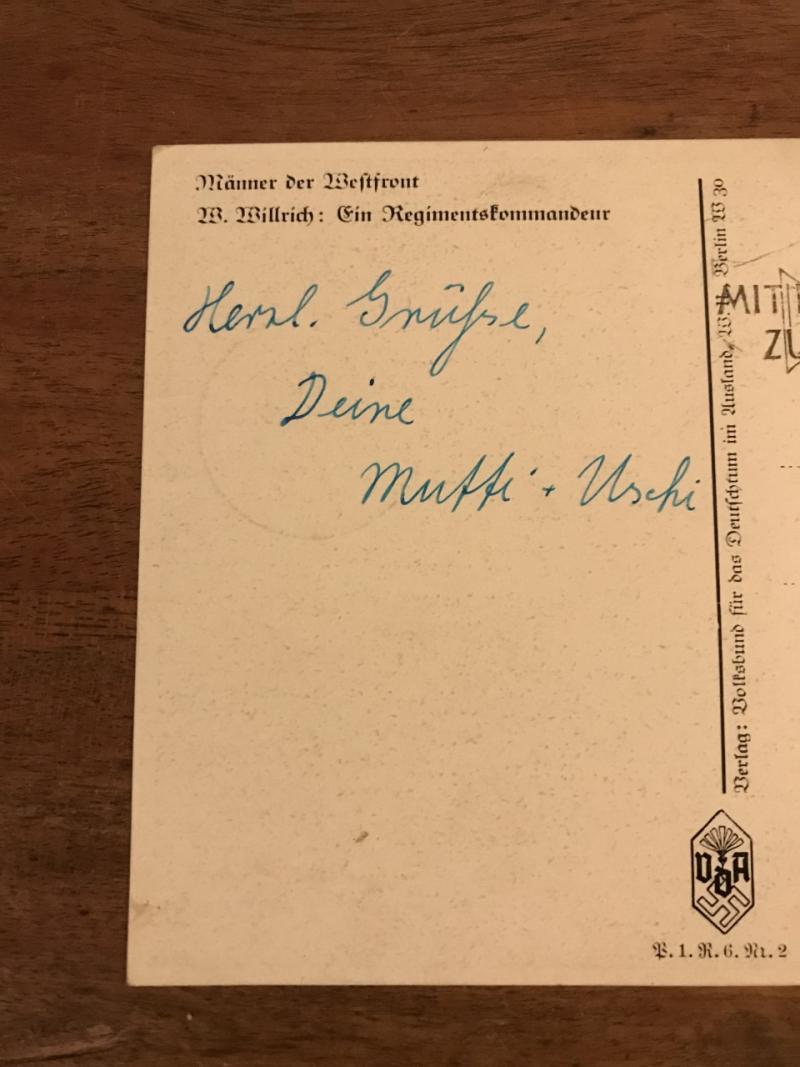 Männer der Westfront
W. Willrich: Ein Regimentskommandeur
Herzl. Grüsse,
Deine
Mutti + Uschi
Verlag: Volksbund für das Deutschtum im Ausland, Berlin W 30
MIT
ZU
VDA
P. 1. R. 6. Nr. 2